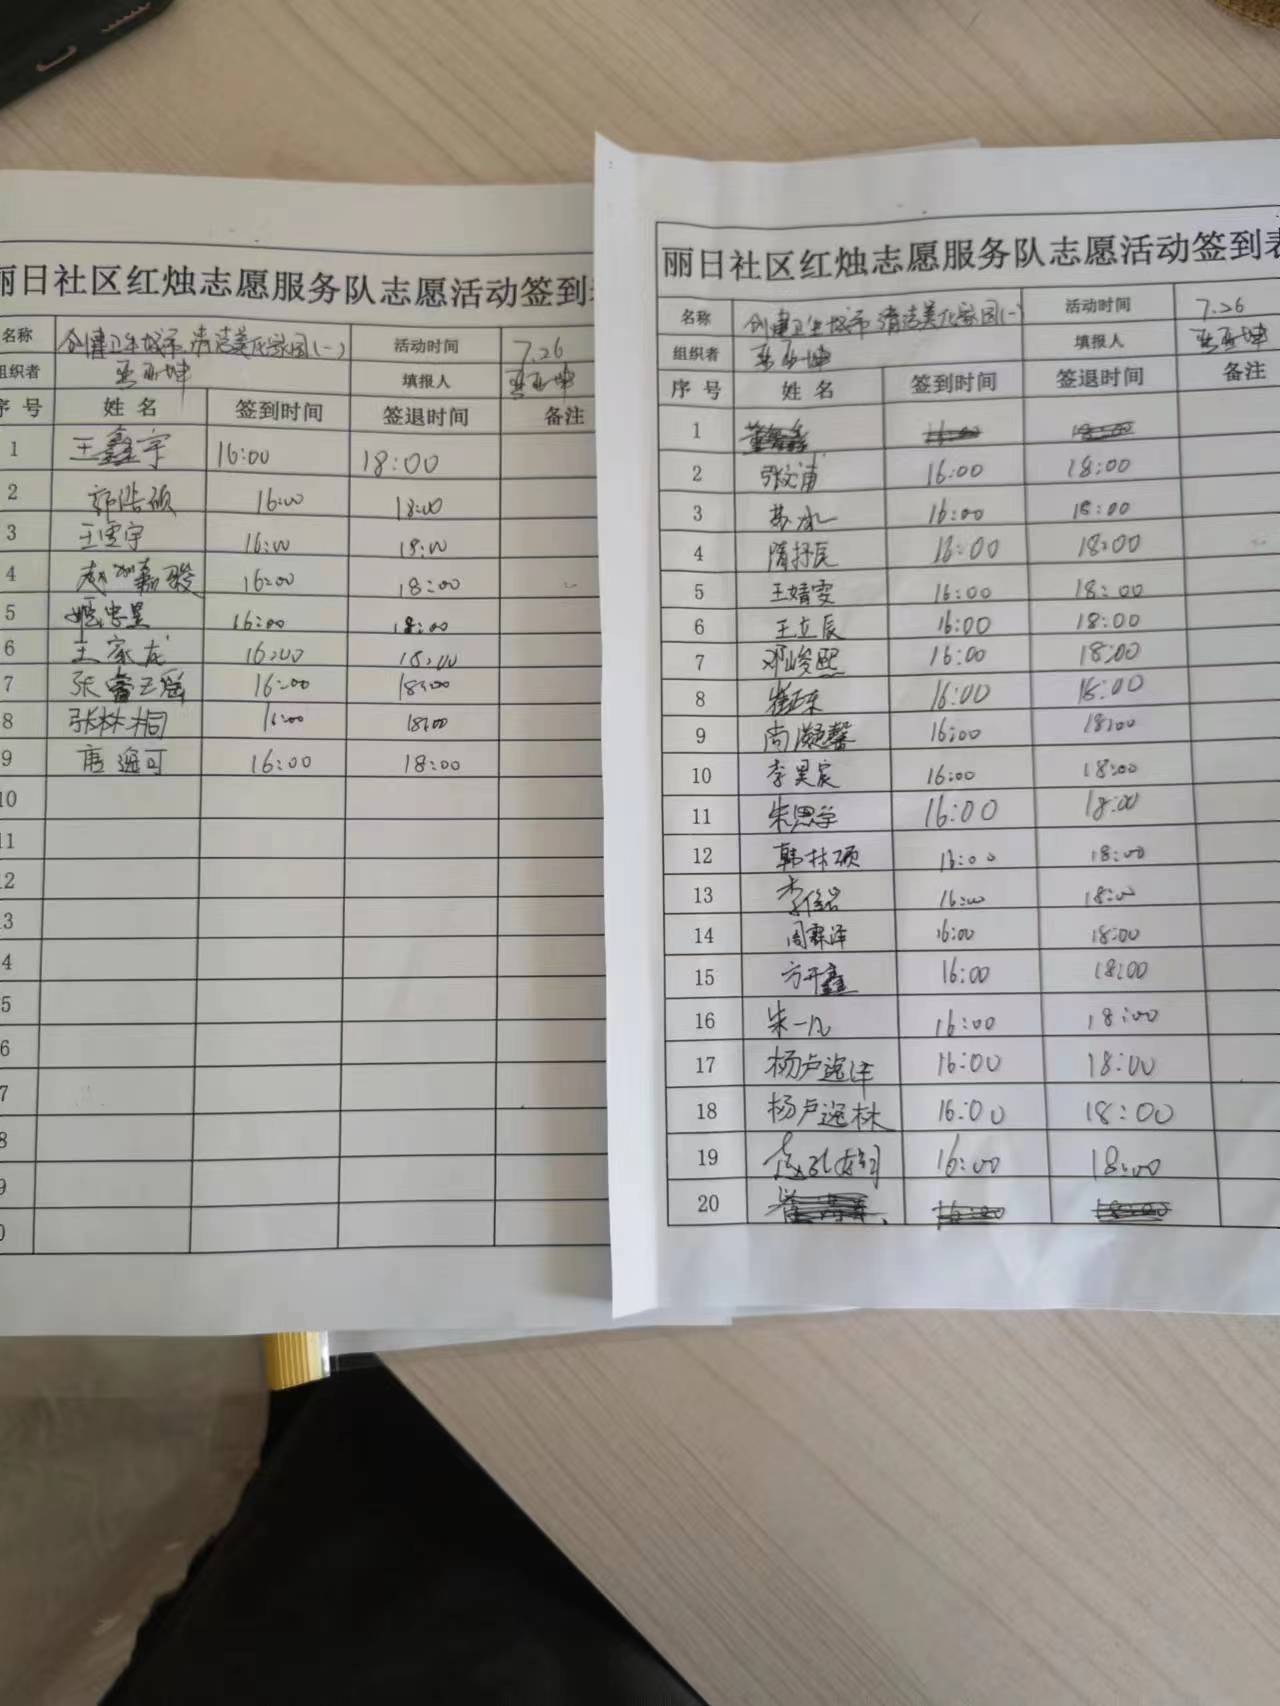 丽日社区红烛志愿服务队志愿活动签到
名称 创建卫生城市 清洁美化家园(一) 活动时间 7.26
组织者 填报人
序号 姓名 签到时间 签退时间 备注
1 王鑫宇 16:00 18:00
2 郭浩硕 16:00 18:00
3 王雪宇 16:00 18:00
4 赵 嘉骏 16:00 18:00
5 姬忠昱 16:00 18:00
6 王家龙 16:00 18:00
7 张 16:00 18:00
8 张林桐 16:00 18:00
9 唐逸可 16:00 18:00
10
11
12
13
4
5
6
7
8
9
0
丽日社区红烛志愿服务队志愿活动签到表
名称 创建卫生城市 清洁美化家园(一) 活动时间 7.26
组织者 填报人
序号 姓名 签到时间 签退时间 备注
1 16:00 18:00
2 张文浦 16:00 18:00
3 苏冰 16:00 18:00
4 隋抒辰 16:00 18:00
5 王婧雯 16:00 18:00
6 王立辰 16:00 18:00
7 邓峻熙 16:00 18:00
8 崔东 16:00 18:00
9 尚凝馨 16:00 18:00
10 李昊宸 16:00 18:00
11 朱思学 16:00 18:00
12 韩林硕 16:00 18:00
13 李佳岩 16:00 18:00
14 周霖泽 16:00 18:00
15 方开鑫 16:00 18:00
16 朱一凡 16:00 18:00
17 杨卢逸洋 16:00 18:00
18 杨卢逸林 16:00 18:00
19 16:00 18:00
20 16:00 18:00